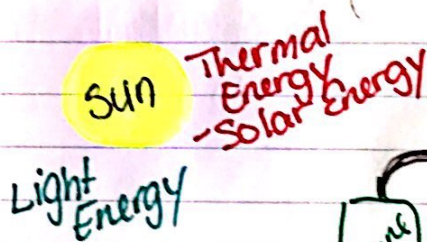 sun
Thermal
Energy
-Solar Energy
Light
Energy